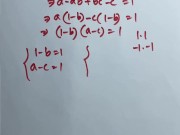 ⇒ a-ab+bc-c=1
⇒ a(1-b)-c(1-b)=1
⇒ (1-b)(a-c)=1
1·1
-1·-1
{ 1-b=1 {
a-c=1